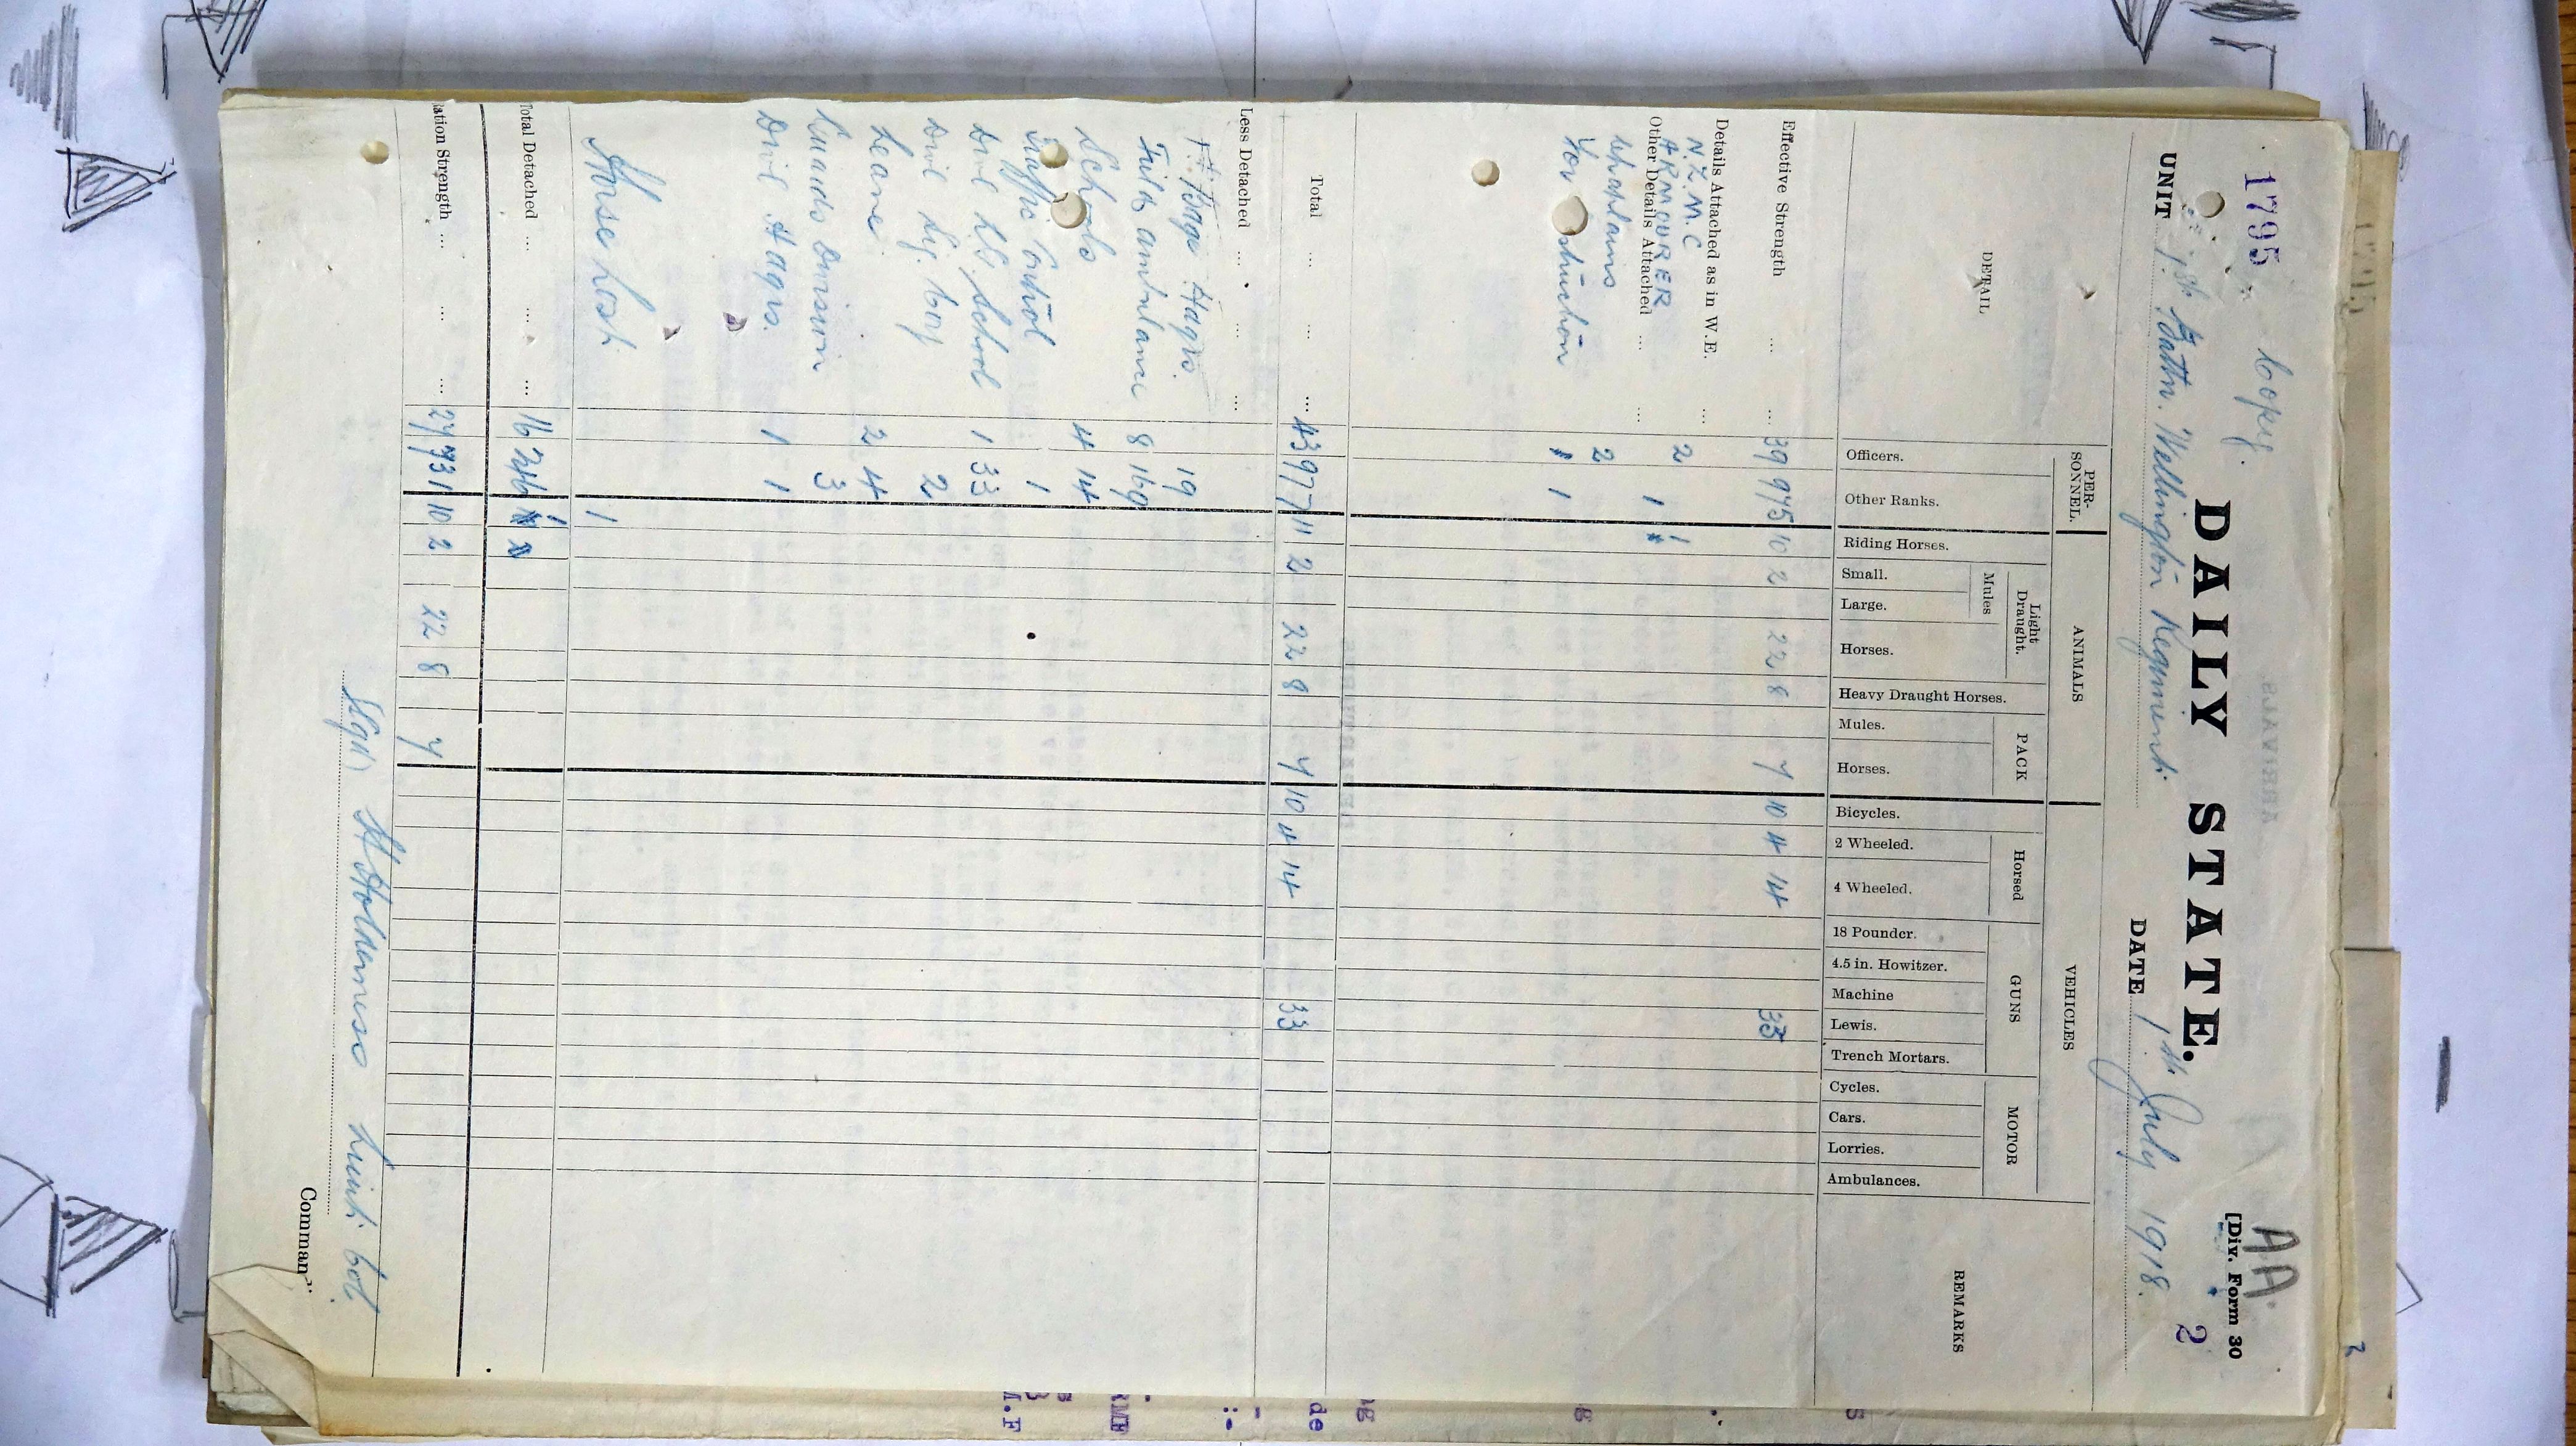 1795
Copy.
AA.
[Div. Form 30
DAILY STATE.
2
UNIT 1st Battn. Wellington Regiment.
DATE 1st July 1918.
DETAIL
PER-SONNEL.
ANIMALS
VEHICLES
REMARKS
Light Draught.
PACK
Horsed
GUNS
MOTOR
Mules
Officers.
Other Ranks.
Riding Horses.
Small.
Large.
Horses.
Heavy Draught Horses.
Mules.
Horses.
Bicycles.
2 Wheeled.
4 Wheeled.
18 Pounder.
4.5 in. Howitzer.
Machine
Lewis.
Trench Mortars.
Cycles.
Cars.
Lorries.
Ambulances.
Effective Strength ... 39 975 10 2 22 8 7 10 4 14 33
Details Attached as in W.E. ...
N.Z.M.C 2
ARMOURER 1 1
Other Details Attached ... ...
Chaplains 2
For 1
Total ... ... ... 43 977 11 2 22 8 7 10 4 14 33
Less Detached ... ... ...
Hqrs. 19
Field Ambulance 8 169
Schools 4 14
Traffic Control 1
Divl. School 1 33
Divl. Sig. Coy 2
Leave 2 4
Guards Division 3
Divl Hqrs. 1 1
Horse Lost. 1
Total Detached ... ... ... 16 246 1
ation Strength ... ... ... 27 731 10 2 22 8 7
(Sgd) H Holderness Lieut Col.
Comman